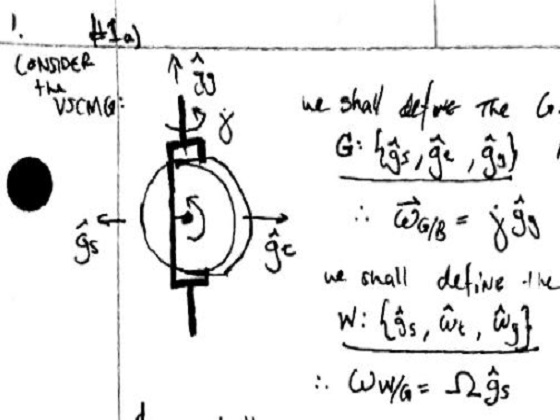 1. #1a)
CONSIDER
the
VSCMG:
ĝg
γ̇
ĝs
ĝt
we shall define the G
G: {ĝs, ĝt, ĝg}
∴ ω⃗G/B = γ̇ ĝg
we shall define the
W: {ĝs, ŵt, ŵg}
∴ ωW/G = Ω ĝs